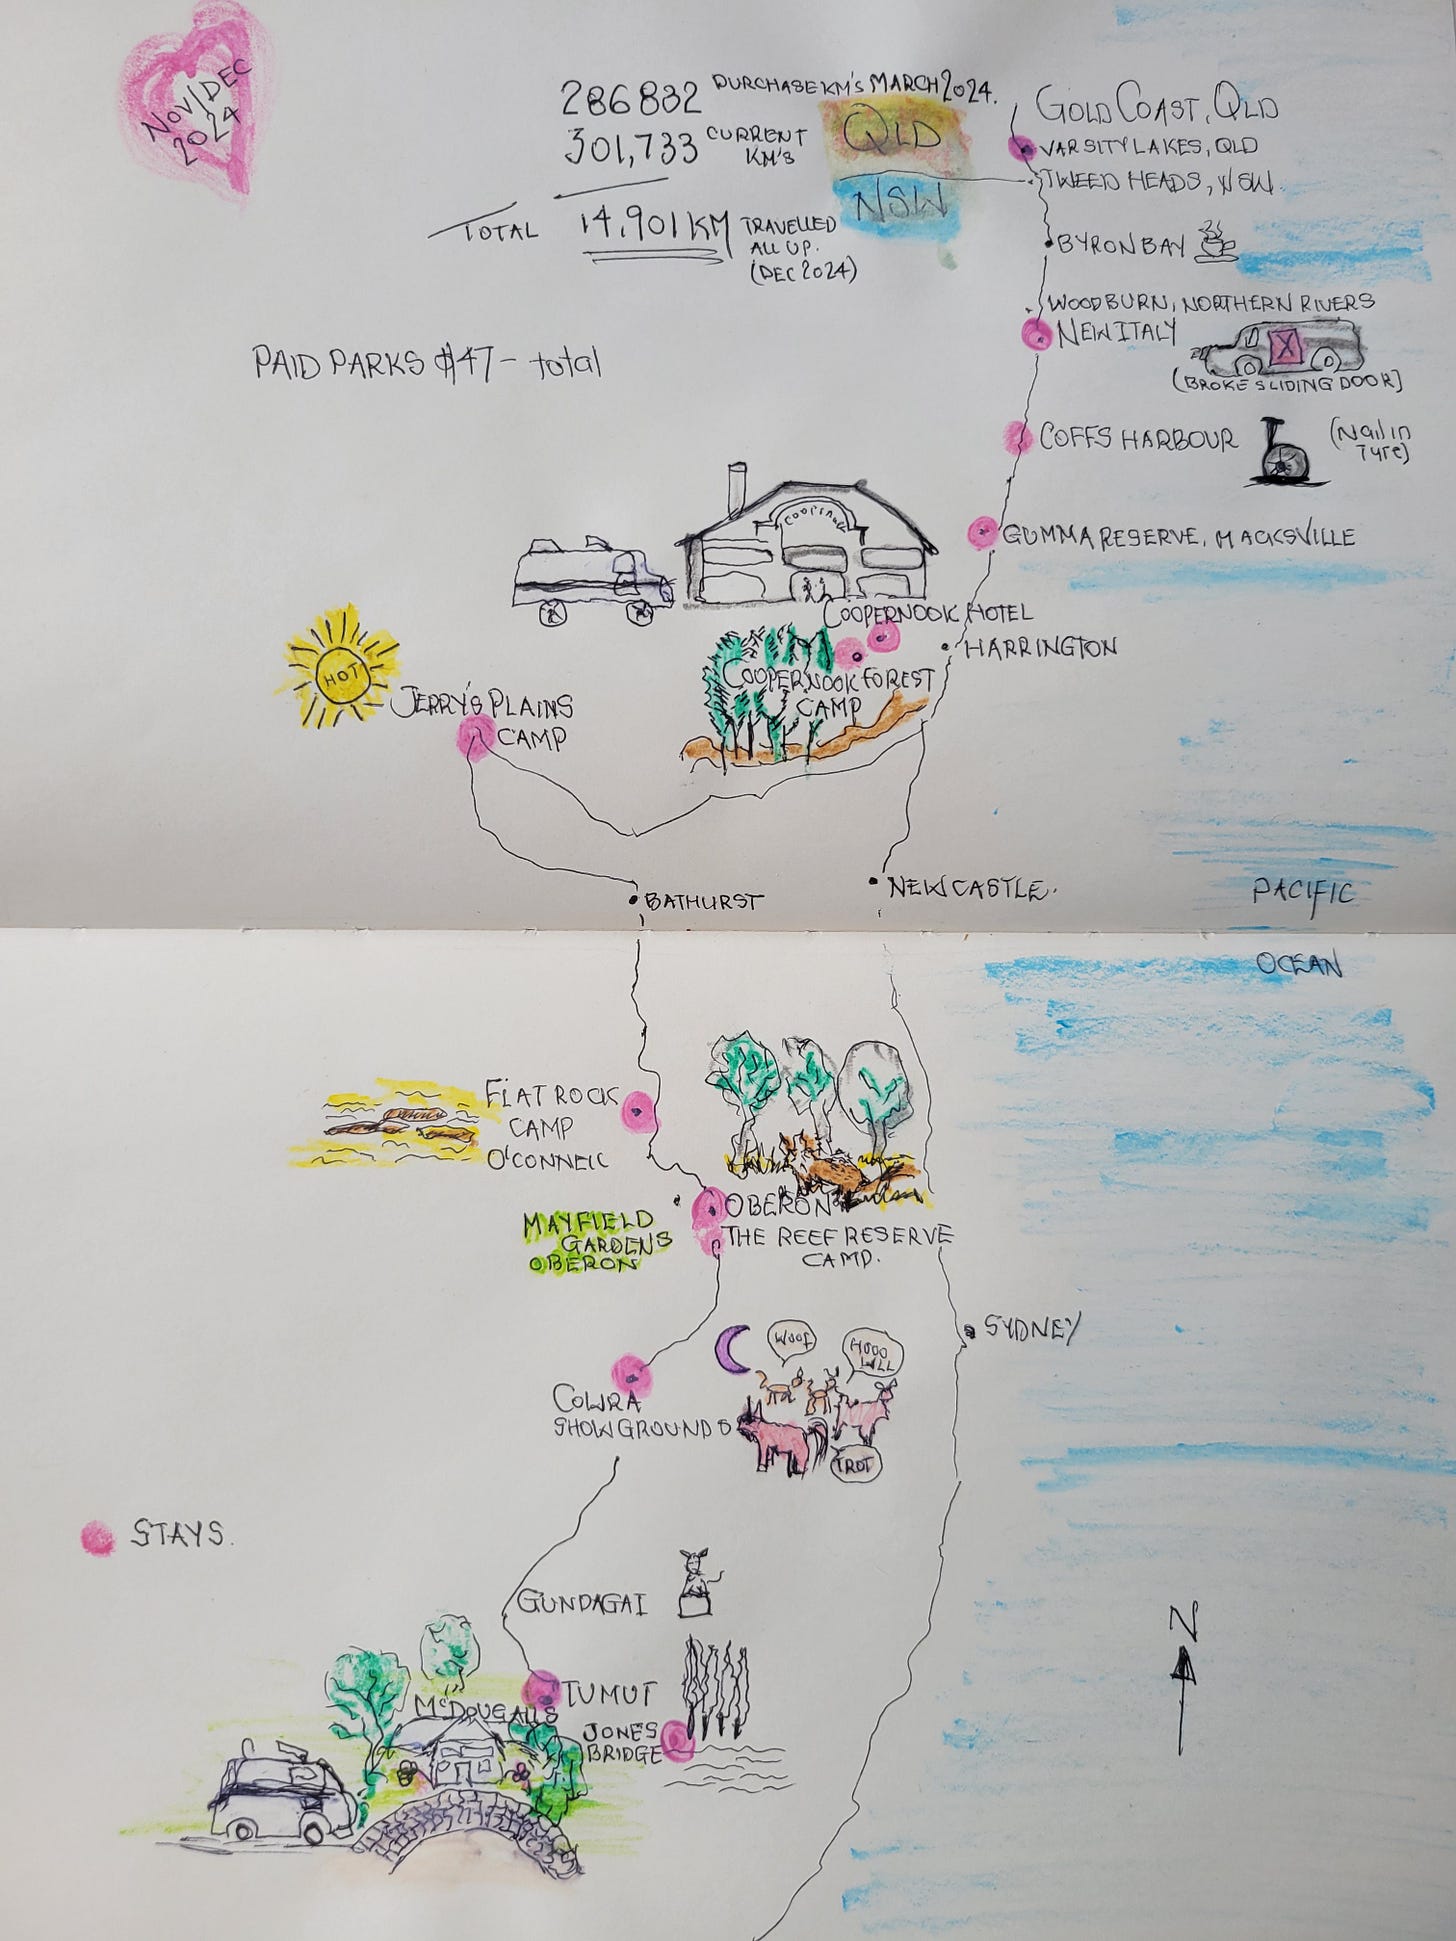 NOV/DEC
2024
286832 PURCHASE KM'S MARCH 2024.
301,733 CURRENT
KM'S
TOTAL 14,901 KM TRAVELLED
ALL UP.
(DEC 2024)
QLD
NSW
GOLD COAST, QLD
VARSITY LAKES, QLD
TWEED HEADS, NSW.
BYRON BAY
WOODBURN, NORTHERN RIVERS
NEW ITALY
X
(BROKE SLIDING DOOR)
PAID PARKS $47- total
COFFS HARBOUR
(Nail in
Tyre)
GUMMA RESERVE, MACKSVILLE
COOPERNOOK HOTEL
HARRINGTON
COOPERNOOK FOREST
CAMP
HOT
JERRY'S PLAINS
CAMP
NEWCASTLE.
BATHURST
PACIFIC
OCEAN
FLAT ROCK
CAMP
O'CONNELL
OBERON
THE REEF RESERVE
CAMP.
MAYFIELD
GARDENS
OBERON
SYDNEY
WOOF
HOOO
WLL
TROT
COWRA
SHOWGROUNDS
STAYS.
GUNDAGAI
N
TUMUT
McDOUGALLS
JONES
BRIDGE